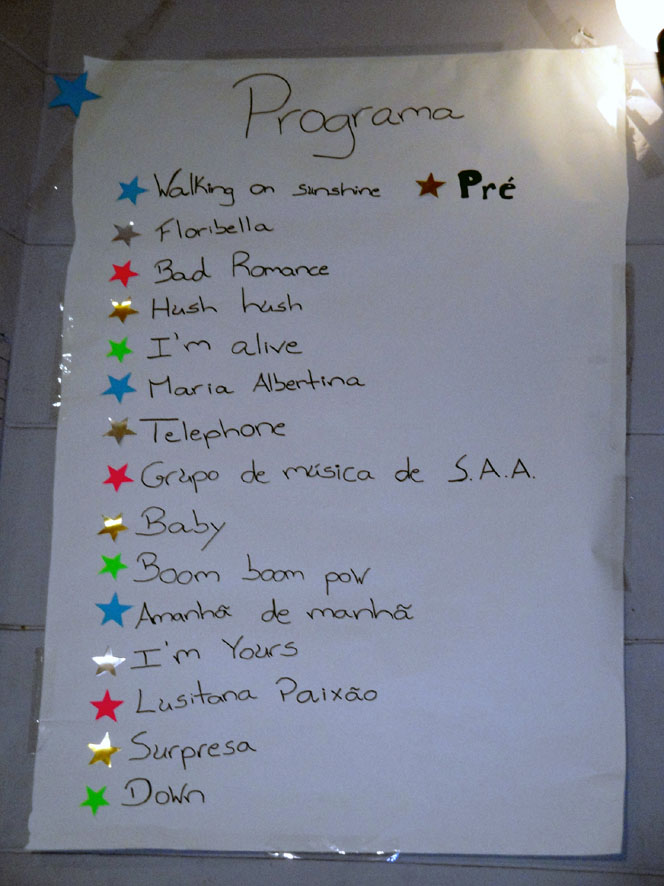 Programa
Walking on sunshine Pré
Floribella
Bad Romance
Hush hush
I'm alive
Maria Albertina
Telephone
Grupo de música de S.A.A.
Baby
Boom boom pow
Amanhã de manhã
I'm Yours
Lusitana Paixão
Surpresa
Down